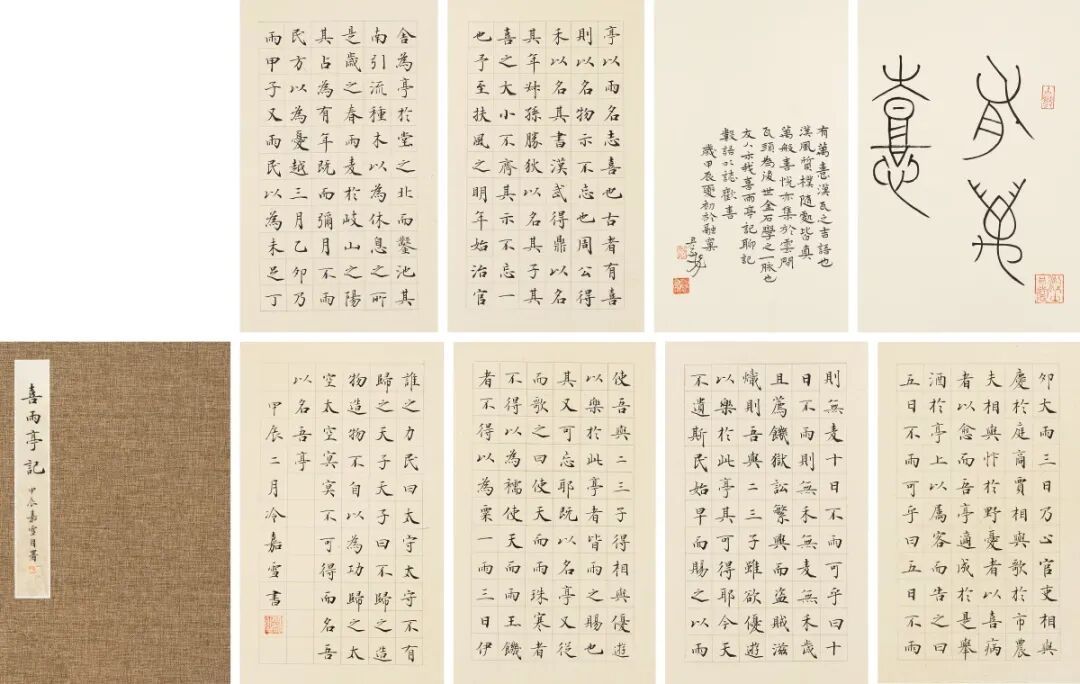 喜雨亭記
甲辰嘉雪自署
有萬
憙
有萬憙漢瓦之言語也
漢風質樸隨處皆真
萬般喜悅亦集於雲間
瓦頭為後世金石學之一脈也
友人示我喜雨亭記聊記
數語以誌歡喜
歲甲辰夏初於融稾
亭以雨名志喜也古者有喜
則以名物示不忘也周公得
禾以名其書漢武得鼎以名
其年叔孫勝狄以名其子其
喜之大小不齊其示不忘一
也予至扶風之明年始治官
舍為亭於堂之北而鑿池其
南引流種木以為休息之所
是歲之春雨麥於岐山之陽
其占為有年既而彌月不雨
民方以為憂越三月乙卯乃
雨甲子又雨民以為未足丁
卯大雨三日乃止官吏相與
慶於庭商賈相與歌於市農
夫相與忭於野憂者以喜病
者以愈而吾亭適成於是舉
酒於亭上以屬客而告之曰
五日不雨可乎曰五日不雨
則無麥十日不雨可乎曰十
日不雨則無禾無麥無禾歲
且薦饑獄訟繁興而盜賊滋
熾則吾與二三子雖欲優遊
以樂於此亭其可得耶今天
不遺斯民始旱而賜之以雨
使吾與二三子得相與優遊
以樂於此亭者皆雨之賜也
其又可忘耶既以名亭又從
而歌之曰使天而雨珠寒者
不得以為襦使天而雨玉饑
者不得以為粟一雨三日伊
誰之力民曰太守太守不有
歸之天子天子曰不歸之造
物造物不自以為功歸之太
空太空冥冥不可得而名吾
以名吾亭
甲辰二月冷嘉雪書